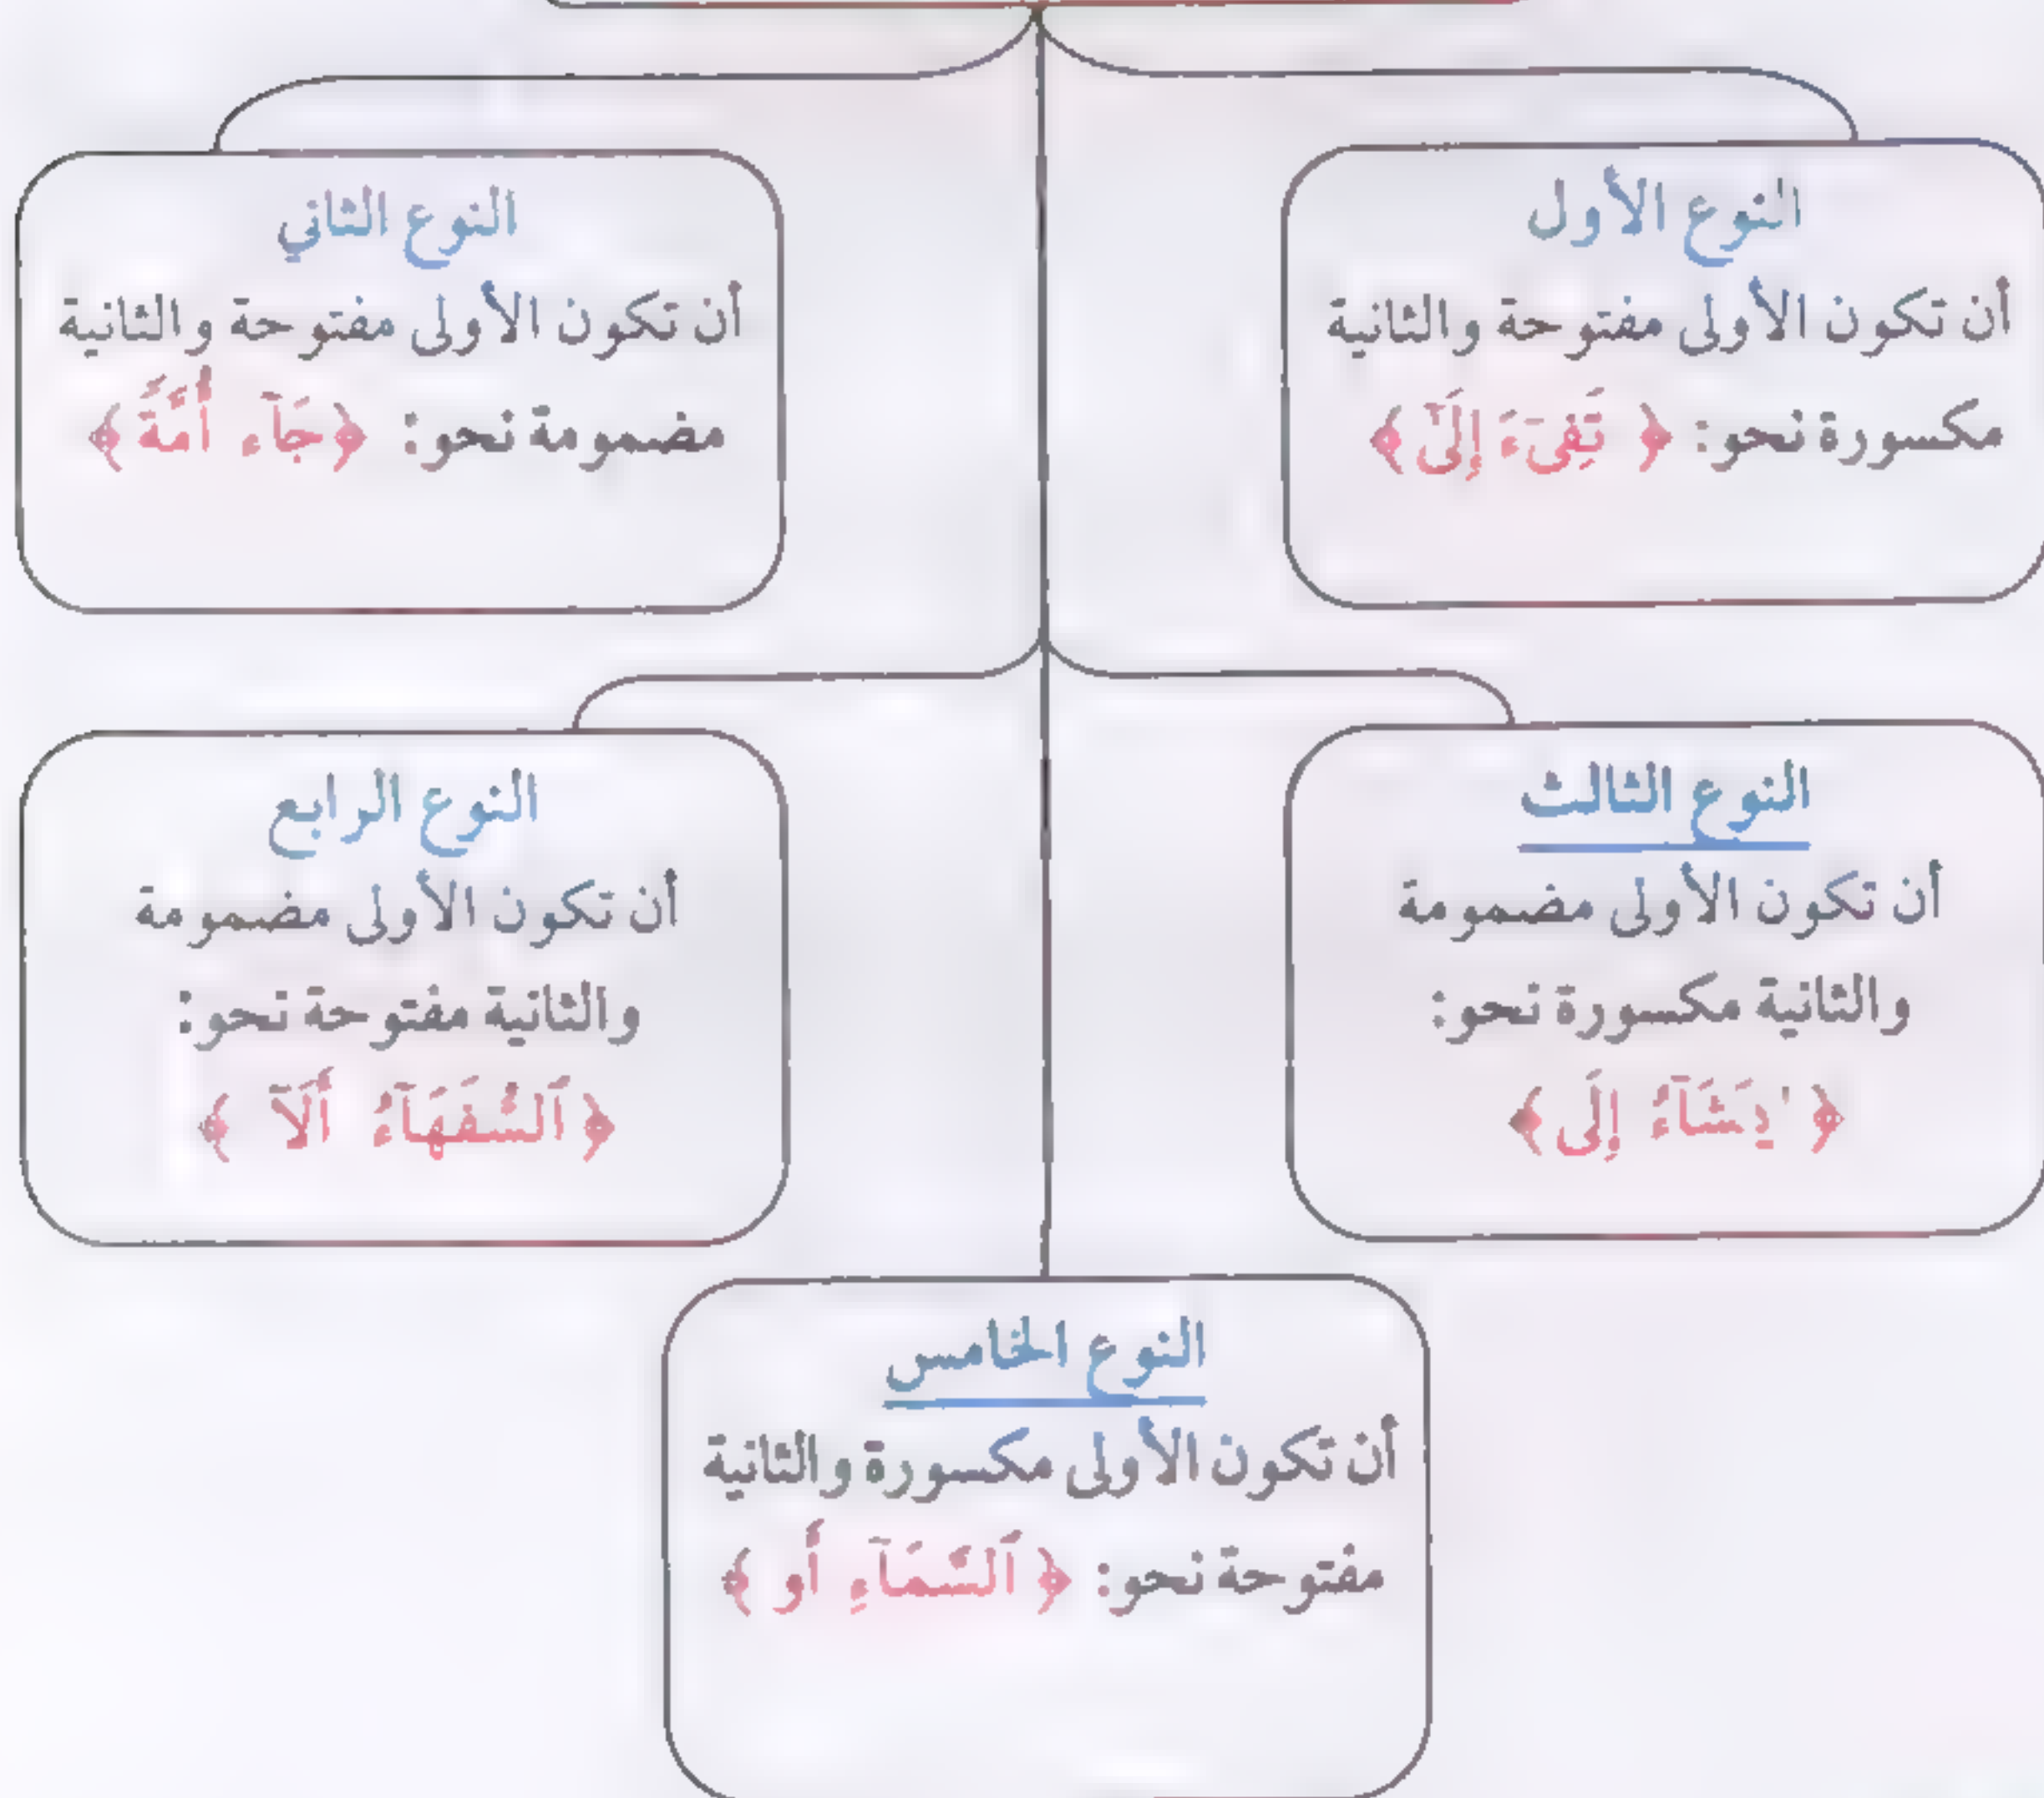 النوع الأول
أن تكون الأولى مفتوحة والثانية
مكسورة نحو: ﴿ تَفِىٓءَ إِلَىٰٓ ﴾
النوع الثاني
أن تكون الأولى مفتوحة والثانية
مضمومة نحو: ﴿جَآء أُمَّةً﴾
النوع الثالث
أن تكون الأولى مضمومة
والثانية مكسورة نحو:
﴿ يَشَآءُ إِلَى﴾
النوع الرابع
أن تكون الأولى مضمومة
والثانية مفتوحة نحو:
﴿ اَلسُّفَهَآءُ أَلَآ ﴾
النوع الخامس
أن تكون الأولى مكسورة والثانية
مفتوحة نحو: ﴿ اَلسَّمَآءِ أَو ﴾